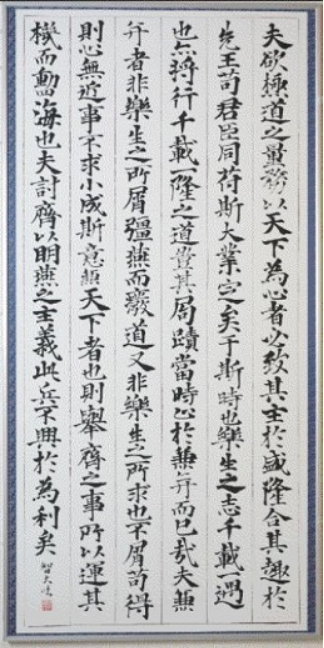 夫欲極道之量務以天下為心者必致其主於盛隆合其趣於
先王苟君臣同符斯大業定矣于斯時也樂生之志千載一遇
也亦將行千載一隆之道豈其局蹟當時止於兼并而已哉夫兼
并者非樂生之所屑彊燕而廢道又非樂生之所求也不屑苟得
則心無近事不求小成斯意兼天下者也則舉齊之事所以運其
機而動海也夫討齊以明燕之主義此兵不興於為利矣